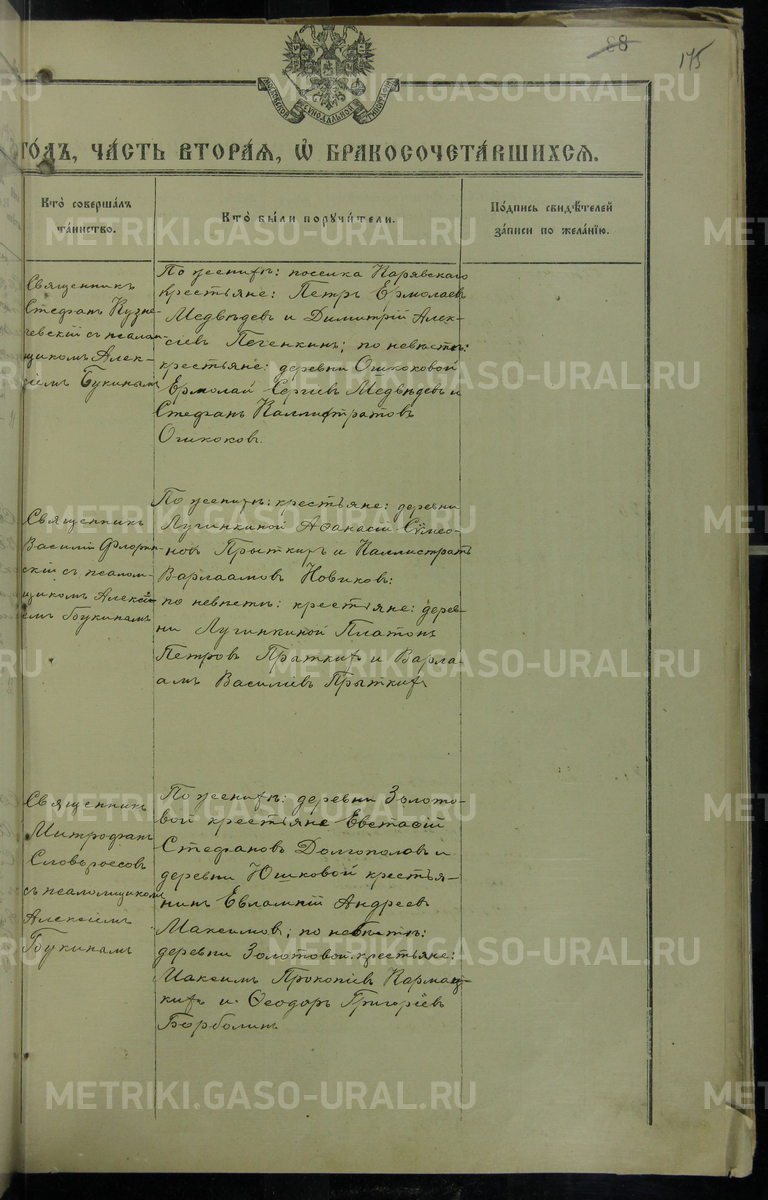 88
175
МОСКОВСКОЙ СѴНОДАЛЬНОЙ ТИПОГРАФІИ
ГО́ДЪ, ЧА́СТЬ ВТОРА́Я, Ѡ БРАКОСОЧЕТА́ВШИХСЯ.
Кто̀ соверша́лъ та́инство.
Кто̀ бы́ли поручи́тели.
По́дпись свидѣ́телей за́писи по жела́нїю.
Священникъ
Стефанъ Кузне-
чевскій съ псалом-
щикомъ Алек-
сіемъ Букинымъ
По женихѣ: поселка Карявскаго
крестьяне: Петръ Ермолаевъ
Медвѣдевъ и Димитрій Алек-
сіевъ Пегенкинъ; по невѣстѣ:
крестьяне: деревни Ошкоковой
Ермолай Сергіевъ Медвѣдевъ и
Стефанъ Каллистратовъ
Ошкоковъ.
Священникъ
Василій Флорин-
скій съ псалом-
щикомъ Алексі-
емъ Букинымъ
По женихѣ: крестьяне: деревни
Лугинкиной Аѳанасій Сѵмео-
новъ Прыткихъ и Каллистратъ
Варлаамовъ Новиковъ:
по невѣстѣ: крестьяне: дерев-
ни Лугинкиной Платонъ
Петровъ Праткихъ и Варла-
амъ Василіевъ Прыткихъ
Священникъ
Митрофанъ
Словороссовъ
съ псаломщикомъ
Алексіемъ
Букинымъ
По женихѣ: деревни Золото-
вой крестьяне Евстасій
Стефановъ Долгополовъ и
деревни Юшковой крестья-
нинъ Евлампій Андреевъ
Максимовъ; по невѣстѣ:
деревни Золотовой крестьяне:
Максимъ Прокопіевъ Кармац-
кихъ и Ѳеодоръ Григоріевъ
Борболинъ
METRIKI.GASO-URAL.RU